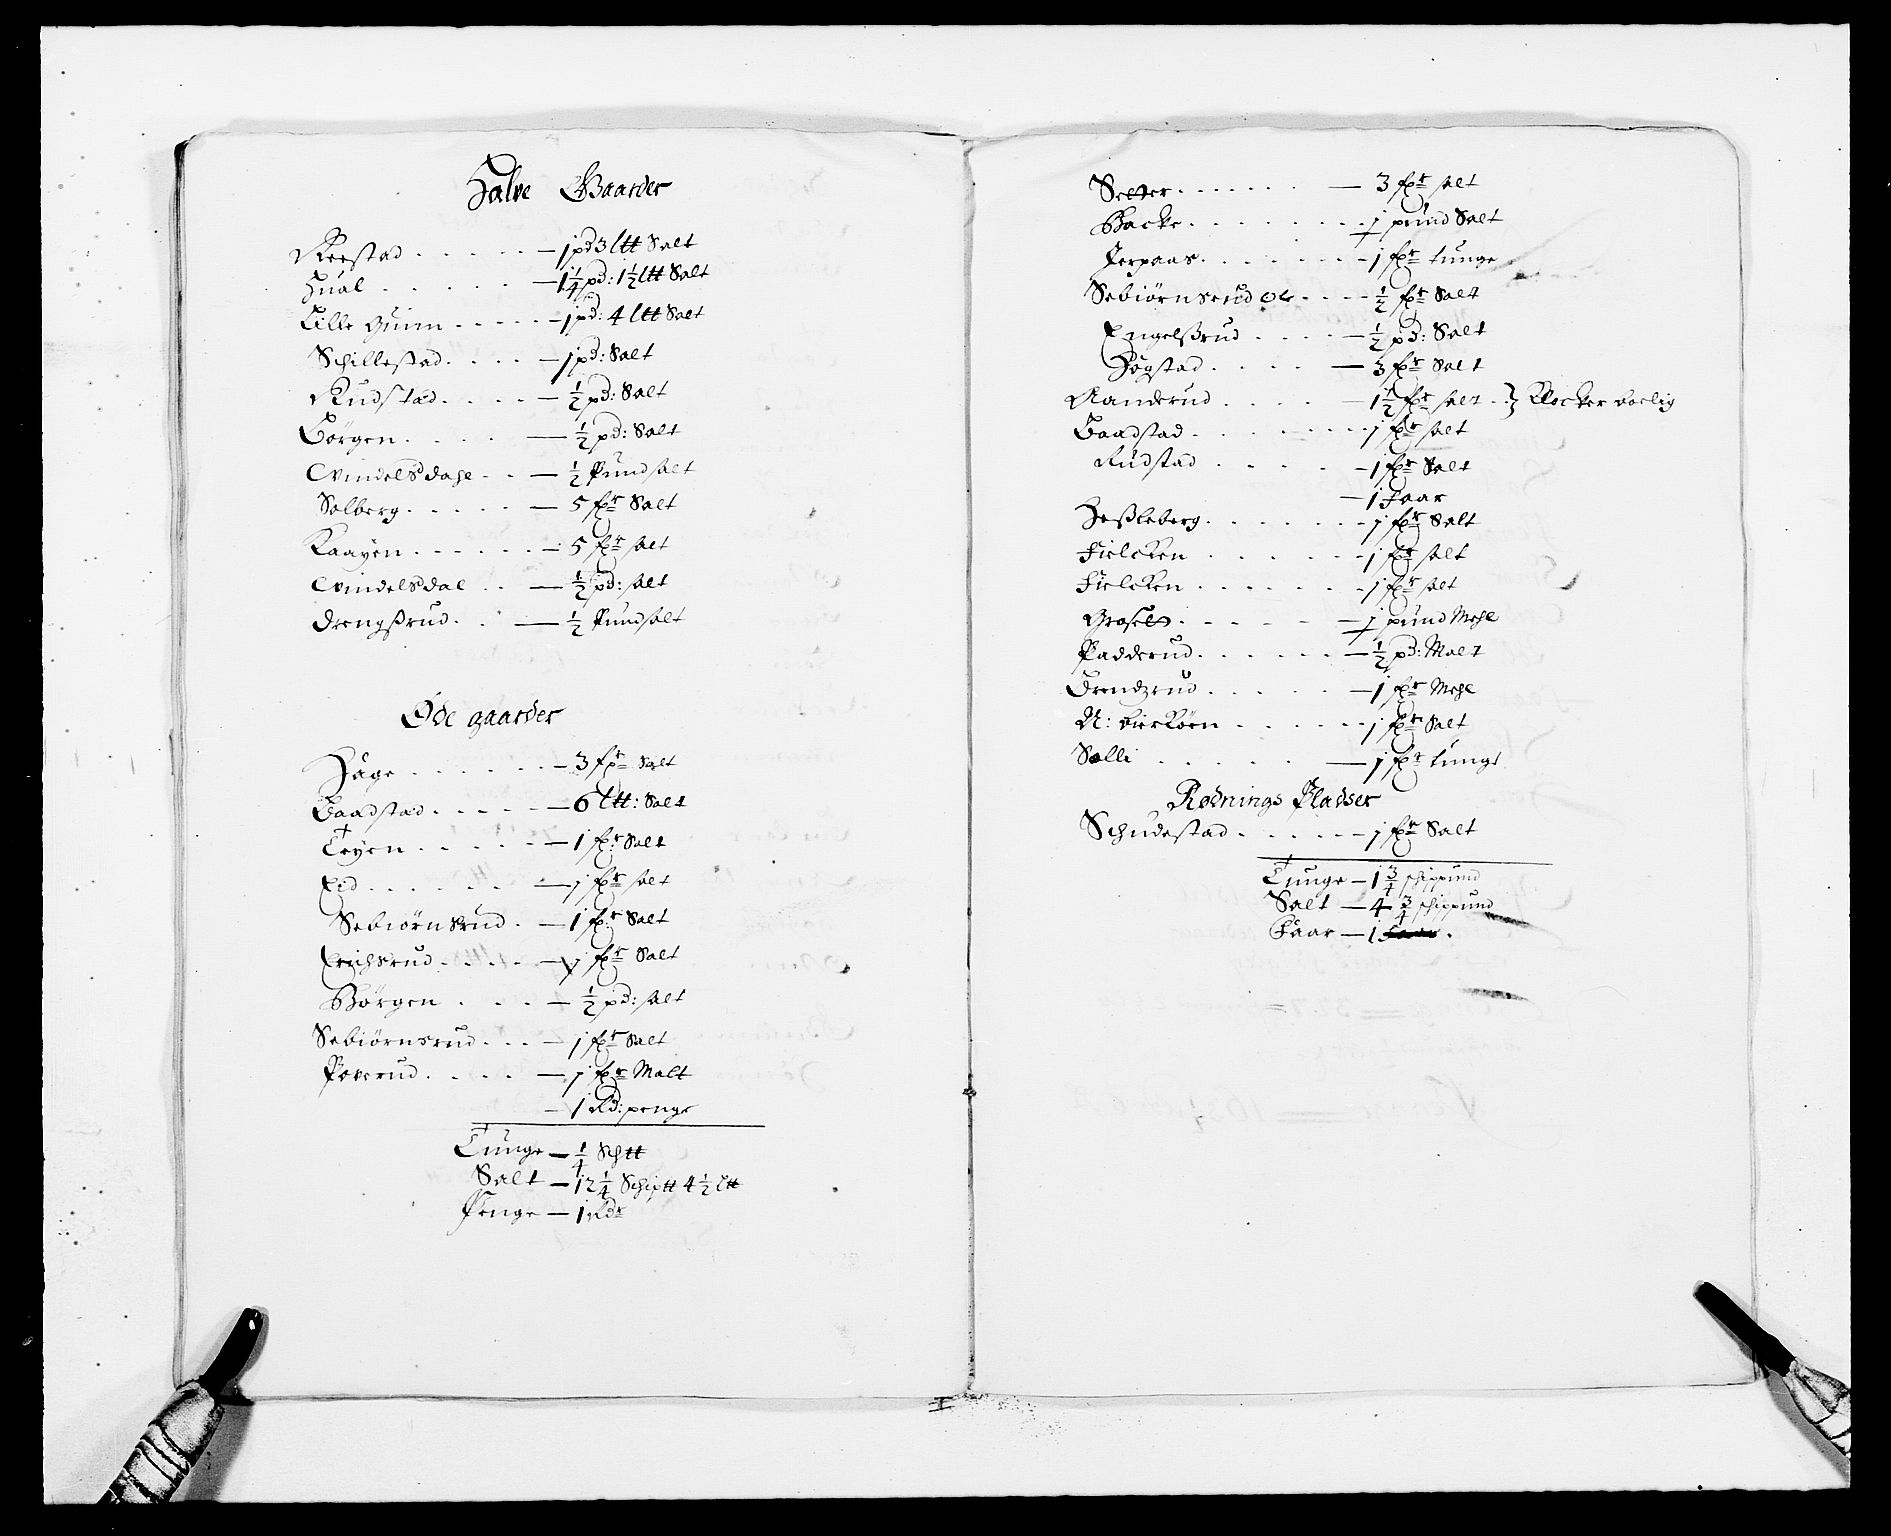 Halve Gaarder
Reestad . . . . . — 1 pd 3 ltt Salt
Hual . . . . . — 1 1/4 pd: 1 1/2 ltt Salt
Lille Huim . . . . — 1 pd: 4 ltt Salt
Schillestad . . . . — 1 pd: Salt
Rudstad . . . . — 1/2 pd: Salt
Börgen . . . . — 1/2 pd: Salt
Qvindelsdahl . . — 1/2 Pund salt
Solberg . . . . . — 5 fxr Salt
Kaayen . . . . . — 5 fxr salt
Qvindelsdal . . — 1/2 pd: salt
Drengßrud . . — 1/2 Pund salt
Øde gaarder
Hage . . . . . . — 3 fxr Salt
Baadstad . . . . . — 6 ltt: Salt
Töyen . . . . . — 1 fxr Salt
Eid . . . . . . — 1 fxr salt
Sebiörnsrud . — 1 fxr Salt
Erichsrud . . . . — 1 fxr Salt
Börgen . . . — 1/2 pd: salt
Sebiörnsrud . . . — 1 fxr Salt
Poverud . . . . — 1 fxr Malt
— 1 Rd: penge
Tunge — 1/4 Schtt
Salt — 12 1/4 Schiptt 4 1/2 ltt
Penge — 1 Rdr
Setter . . . . . . — 3 fxr salt
Backe . . . . . . . — 1 pund Salt
Jerpaas . . . . . . . — 1 fxr tunge
Sebiörnsrud . . . . 1/2 fxr Salt
Engelßrud . . . . — 1/2 pd: Salt
Høgstad . . . . — 3 fxr Salt
Randerud . . . . — 1 1/2 fxr salt . } Klocker boelig
Baadstad . . . . . . . 1 fxr salt
Rudstad . . . . . — 1 fxr Salt
— 1 Faar
Heßleberg . . . . . . — 1 fxr Salt
Fielcken . . . . . . — 1 fxr salt
Fielcken . . . . . . — 1 fxr salt
Groset . . . . . — 1 pund Mehl
Padderud . . . . . . — 1/2 pd: Malt
Drendzrud . . . . . — 1 fxr Mehl
N: Bierköen . . . . . — 1 fxr Salt
Solli . . . . . — 1 fxr tunge
Rødnings Pladser
Schudestad . . . . . — 1 fxr Salt
Tunge — 1 3/4 schippund
Salt — 4 3/4 schippund
Faar — 1 .